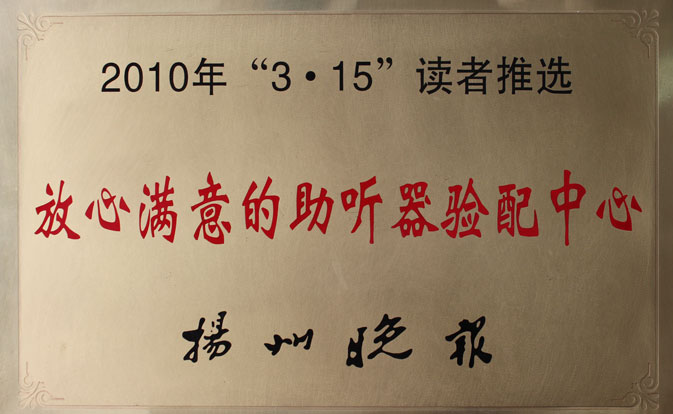 2010年“3·15”读者推选
放心满意的助听器验配中心
揚州晚报